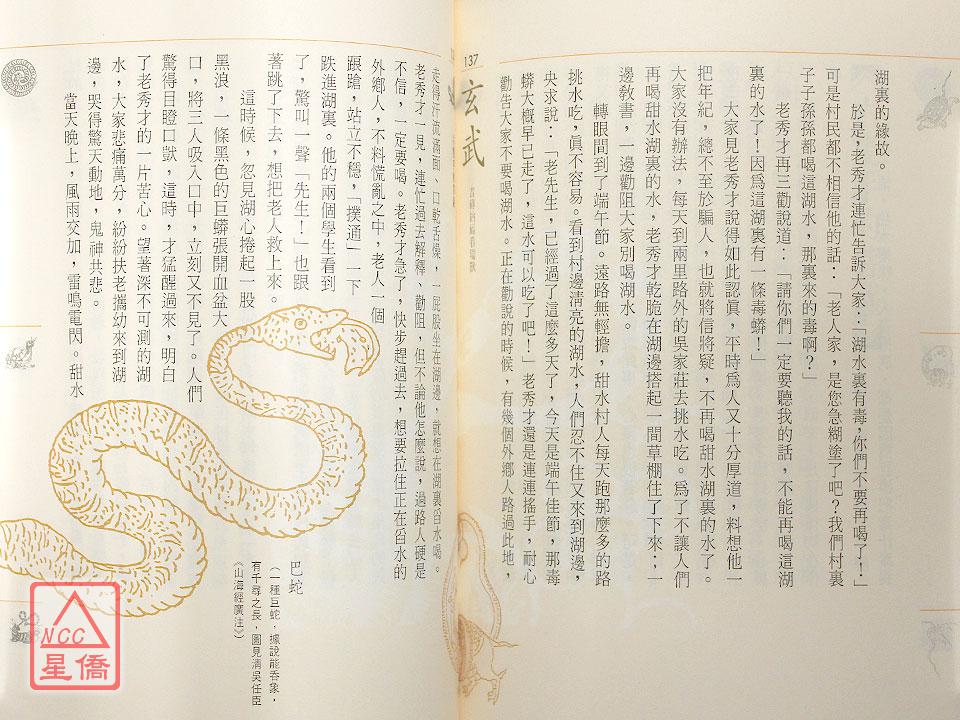 湖裏的緣故。
於是，老秀才連忙告訴大家：「湖水裏有毒，你們不要再喝了！」
可是村民都不相信他的話：「老人家，是您急糊塗了吧？我們村裏
子子孫孫都喝這湖水，那裏來的毒啊？」
老秀才再三勸說道：「請你們一定要聽我的話，不能再喝這湖
裏的水了！因爲這湖裏有一條毒蟒！」
大家見老秀才說得如此認眞，平時爲人又十分厚道，料想他一
把年紀，總不至於騙人，也就將信將疑，不再喝甜水湖裏的水了。
大家沒有辦法，每天到兩里路外的吳家莊去挑水吃。爲了不讓人們
再喝甜水湖裏的水，老秀才乾脆在湖邊搭起一間草棚住了下來；一
邊敎書，一邊勸阻大家別喝湖水。
轉眼間到了端午節。遠路無輕擔，甜水村人每天跑那麼多的路
挑水吃，眞不容易。看到村邊淸亮的湖水，人們忍不住又來到湖邊，
央求說：「老先生，已經過了這麼多天了，今天是端午佳節，那毒
蟒大槪早已走了，這水可以吃了吧！」老秀才還是連連搖手，耐心
勸告大家不要喝湖水。正在勸說的時候，有幾個外鄉人路過此地，
137
玄武
走得汗流滿面、口乾舌燥，一屁股坐在湖邊，就想在湖裏舀水喝。
老秀才一見，連忙過去解釋、勸阻，但不論他怎麼說，過路人硬是
不信，一定要喝。老秀才急了，快步趕過去，想要拉住正在舀水的
外鄉人，不料慌亂之中，老人一個
踉蹌，站立不穩，「撲通」一下
跌進湖裏。他的兩個學生看到
了，驚叫一聲「先生！」也跟
著跳了下去，想把老人救上來。
這時候，忽見湖心捲起一股
黑浪，一條黑色的巨蟒張開血盆大
口，將三人吸入口中，立刻又不見了。人們
驚得目瞪口獃，這時，才猛醒過來，明白
了老秀才的一片苦心。望著深不可測的湖
水，大家悲痛萬分，紛紛扶老攜幼來到湖
邊，哭得驚天動地，鬼神共悲。
當天晚上，風雨交加，雷鳴電閃。甜水
巴蛇
（一種巨蛇，據說能吞象，
有千尋之長，圖見淸吳任臣
《山海經廣注》）
NCC
星僑